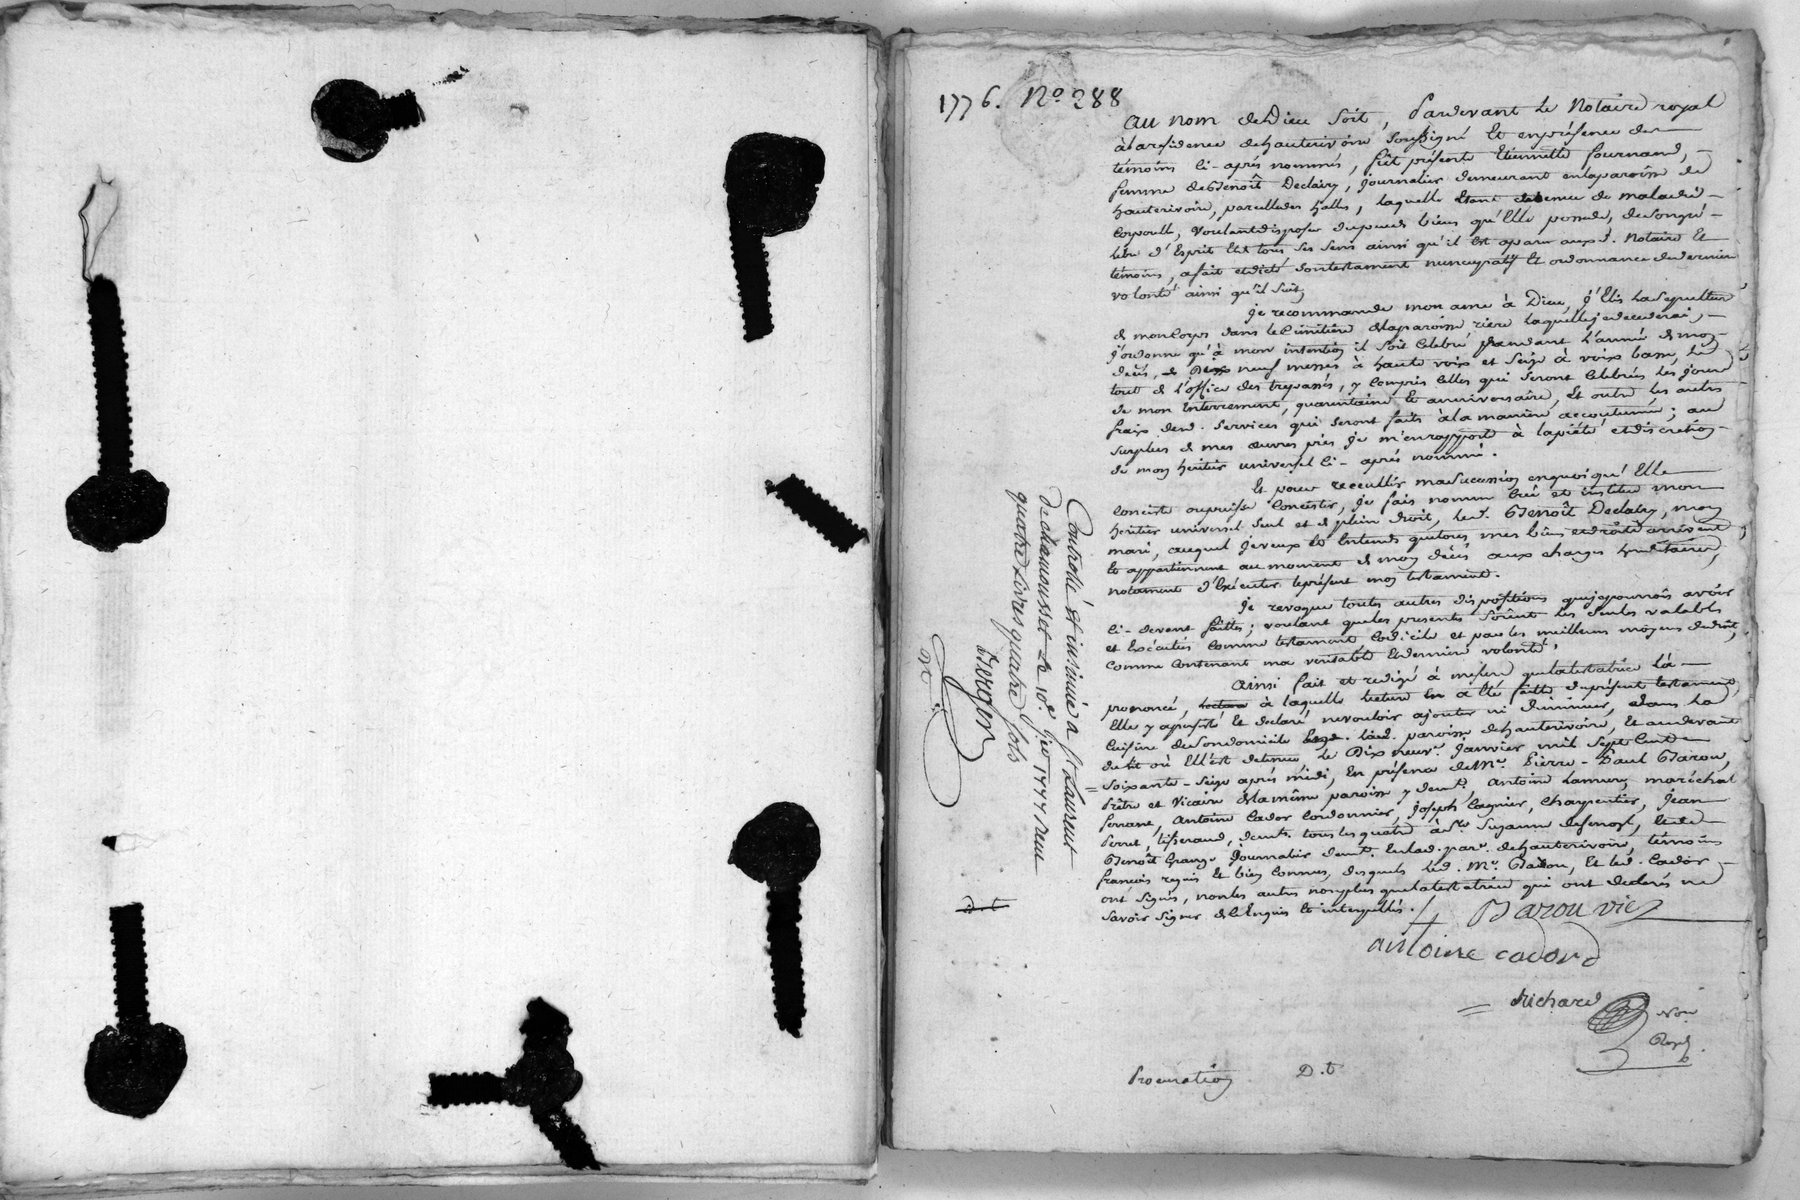 1776. No. 288
au nom de Dieu soit, Pardevant le Notaire royal
à la residence de hauterivoire soussigné Et en présence des
témoins ci-après nommés, fut présente Etiennette fournand,
femme de Benoît Declairy, journalier demeurant en la paroisse de
hauterivoire, laquelle Etant detenue de maladie
corporelle, voulant disposer du peu de biens qu'Elle possede, de son gré
libre d'Esprit Et de tous ses sens ainsi qu'il Est aparu aux d. Notaire Et
témoins, a fait et dicté son testament nuncupatif Et ordonnance de derniere
volonté ainsi qu'il suit,
je recommande mon ame à Dieu, j'Elis la sepulture
de mon corps dans le cimitière de la paroisse riere laquelle je decederai,
j'ordonne qu'à mon intention il soit celebré pendant l'année de mon
décès, neuf messes à haute voix et seize à voix basse, le
tout de l'office des trepassés, y compris celles qui seront celebrées les jours
de mon Enterrement, quarantaine Et anniversaire, Et outre les autres
fraix desd. services qui seront faits à la manière accoutumée; au
surplus de mes œuvres pies je m'en rapporte à la piété et discretion
de mon heritier universel ci-après nommé.
Et pour receullir ma succession en quoi qu'Elle
consiste ou puisse consister, je fais nomme créé et institue mon
heritier universel seul et de plein droit, led. Benoît Declairy, mon
mari, auquel je veux Et Entends que tous mes biens et droits arrivent
Et appartiennent au moment de mon décès aux charges hereditaires,
notament d'Exécuter le présent mon testament.
je revoque toutes autres dispositions que je pourrois avoir
ci-devant faittes; voulant que les presentes soïent les seules valables
et Exécutées comme testament codicile et par les meilleurs moyens de droit,
comme contenant ma veritable Et derniere volonté,
Ainsi fait et redigé à mesure que la testatrice l'a
prononcé, à laquelle lecture En a Eté faitte du présent testament,
Elle y a persisté Et declaré ne vouloir ajouter ni diminuer, dans la
cuisine de son domicile lad. paroisse de hauterivoire, Et au devant
du lit où Elle est detenue le Dix neuf janvier mil sept Cent
soixante-seize après midi, En présence de Me. Pierre-Paul Barou,
Prêtre et Vicaire de la même paroisse y demt., Antoine Lamury maréchal
ferrant, Antoine Cador Cordonnier, joseph Cagnier, Charpentier, jean
Perret, tisserand, demts. tous les quatre à Ste. Suzanne, Et de
Benoît Grange journalier demt. En lad. par. de hauterivoire, témoins
françois requis Et bien connus, desquels led. Me. Barou, Et led. Cador
ont signés, non les autres non plus que la testatrice qui ont declarés ne
savoir signer de ce Enquis Et interpellés.
Barou vic
antoine cador
Richard
Nore
Royal
Controllé et insinué a St Laurent
de chamousset le 10e jer 1777 Reçu
quatre livres quatre sols
Berger
D.t
Procuration D.t